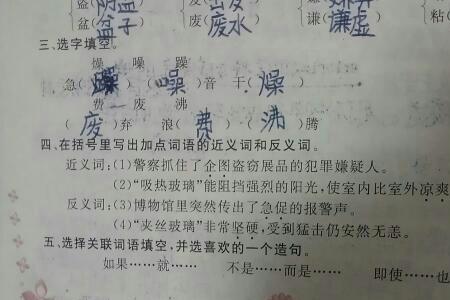 盗(阴盗 废(出发 嫌(嫌弃
盆(盆子 废(废水 谦(谦虚 粘(
三、选字填空。
燥 噪 躁
急(躁) (噪)音 干(燥)
费 废 沸
(废)弃 浪(费) (沸)腾
四、在括号里写出加点词语的近义词和反义词。
近义词:(1)警察抓住了企图盗窃展品的犯罪嫌疑人。
(2)“吸热玻璃”能阻挡强烈的阳光,使室内比室外凉爽
反义词:(3)博物馆里突然传出了急促的报警声。
(4)“夹丝玻璃”非常坚硬,受到猛击仍安然无恙。
五、选择关联词语填空,并选喜欢的一个造句。
如果……就…… 不是……而是…… 即使……也